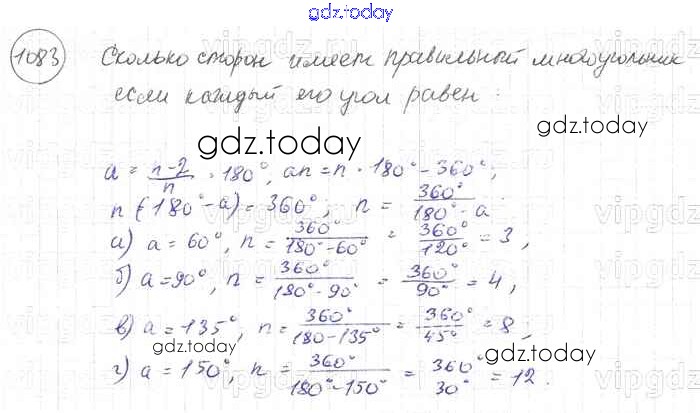 gdz.today
1083 Сколько сторон имеет правильный многоугольник
если каждый его угол равен:
gdz.today
gdz.today
a = n-2/n · 180°, an = n · 180° - 360°;
n (180° - a) = 360°; n = 360°/180° - a
а) a = 60°, n = 360°/180° - 60° = 360°/120° = 3,
б) a = 90°, n = 360°/180° - 90° = 360°/90° = 4,
в) a = 135°, n = 360°/180 - 135° = 360°/45° = 8;
gdz.today
gdz.today
г) a = 150°, n = 360°/180° - 150° = 360°/30° = 12.